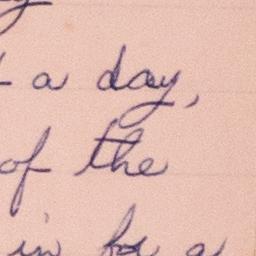 a day,
of the
in for a